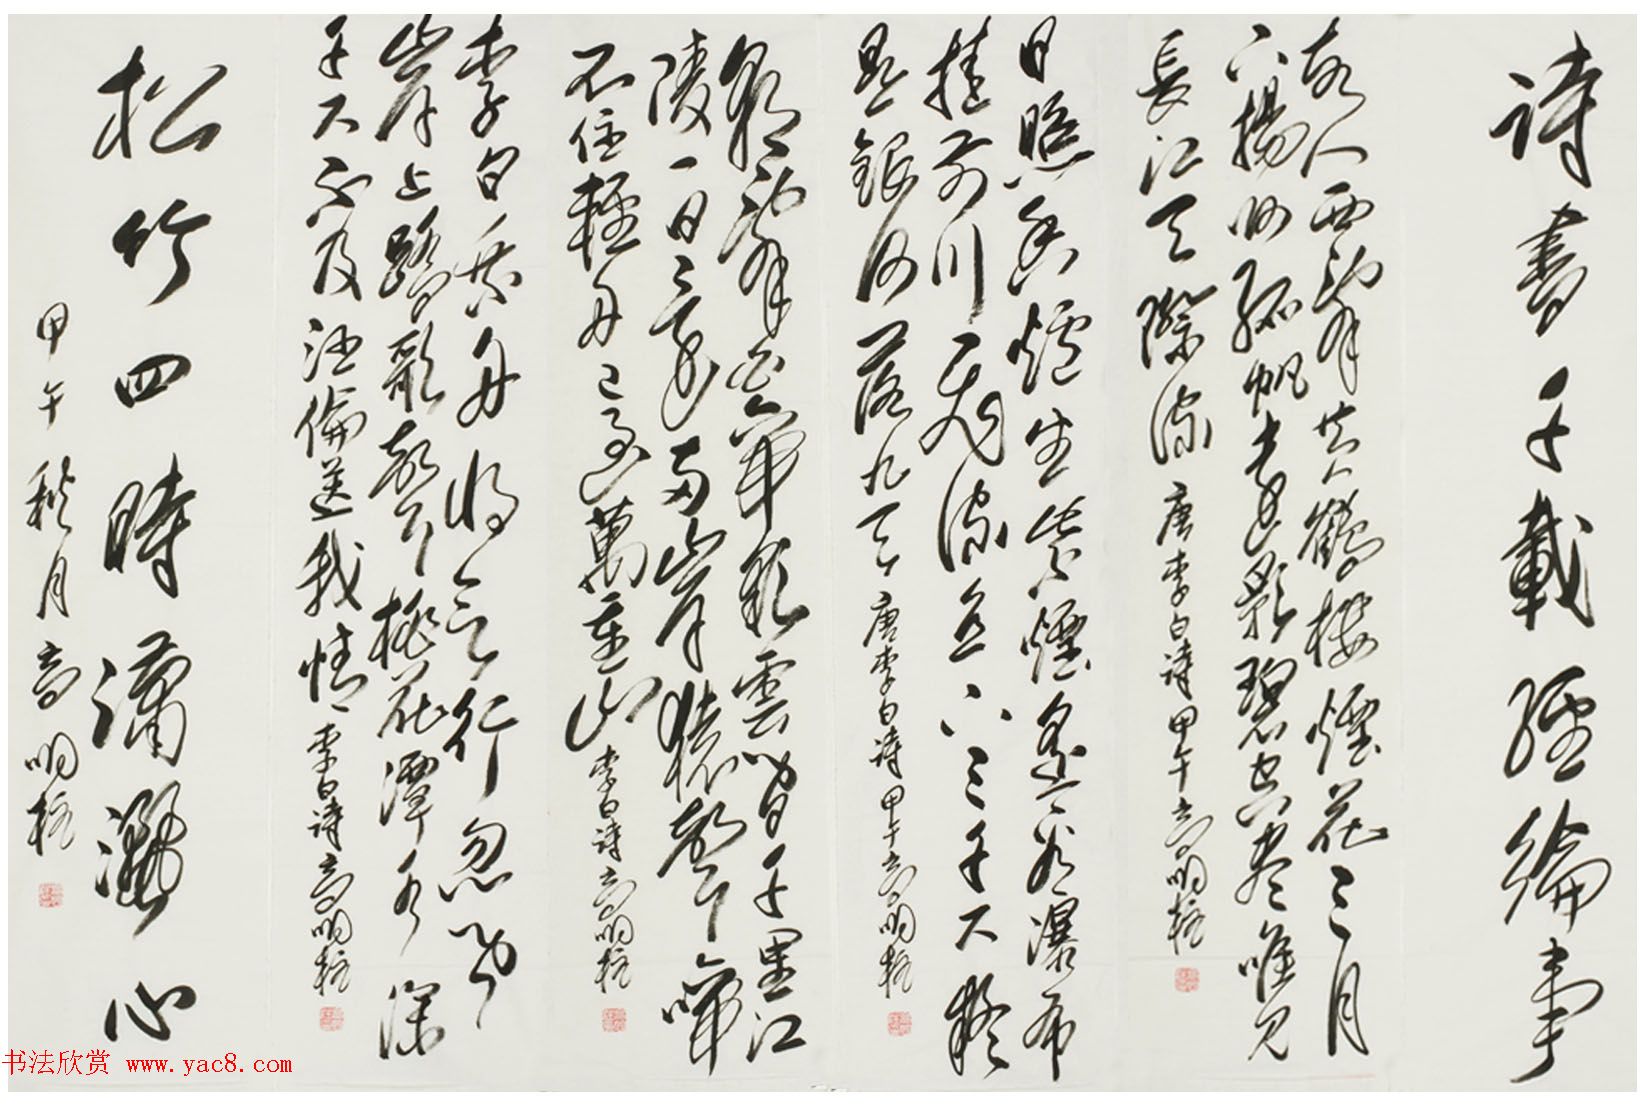 詩書千載經綸事
故人西辭黃鶴樓煙花三月
下揚州孤帆遠影碧空盡唯見
長江天際流 唐李白詩甲午高明
日照香爐生紫煙遙看瀑布
挂前川飛流直下三千尺疑
是銀河落九天 唐李白詩甲午高明
朝辭白帝彩雲間千里江
陵一日還兩岸猿聲啼
不住輕舟已過萬重山 李白詩高明
李白乘舟將欲行忽聞
岸上踏歌聲桃花潭水深
千尺不及汪倫送我情 李白詩高明
松竹四時瀟灑心
甲午秋月高明
书法欣赏 www.yac8.com